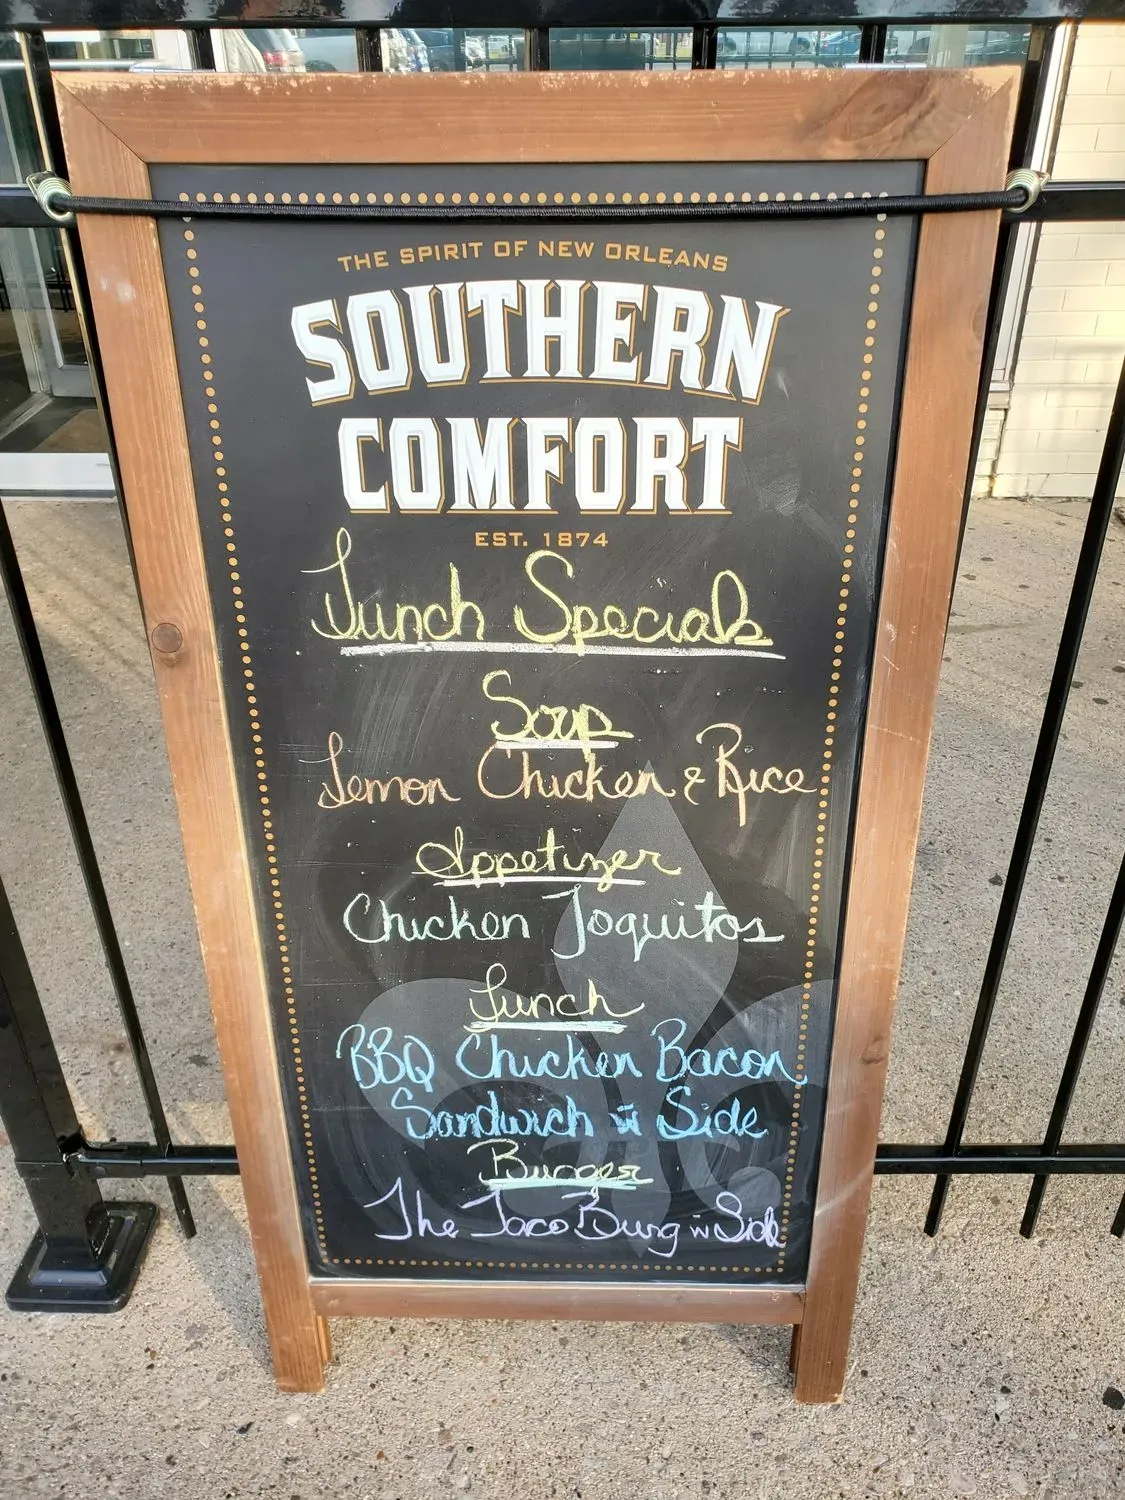 THE SPIRIT OF NEW ORLEANS
SOUTHERN
COMFORT
EST. 1874
Lunch Specials
Soup
Lemon Chicken & Rice
Appetizer
Chicken Toquitos
Lunch
BBQ Chicken Bacon
Sandwich w Side
Burger
The Taco Burg w Side